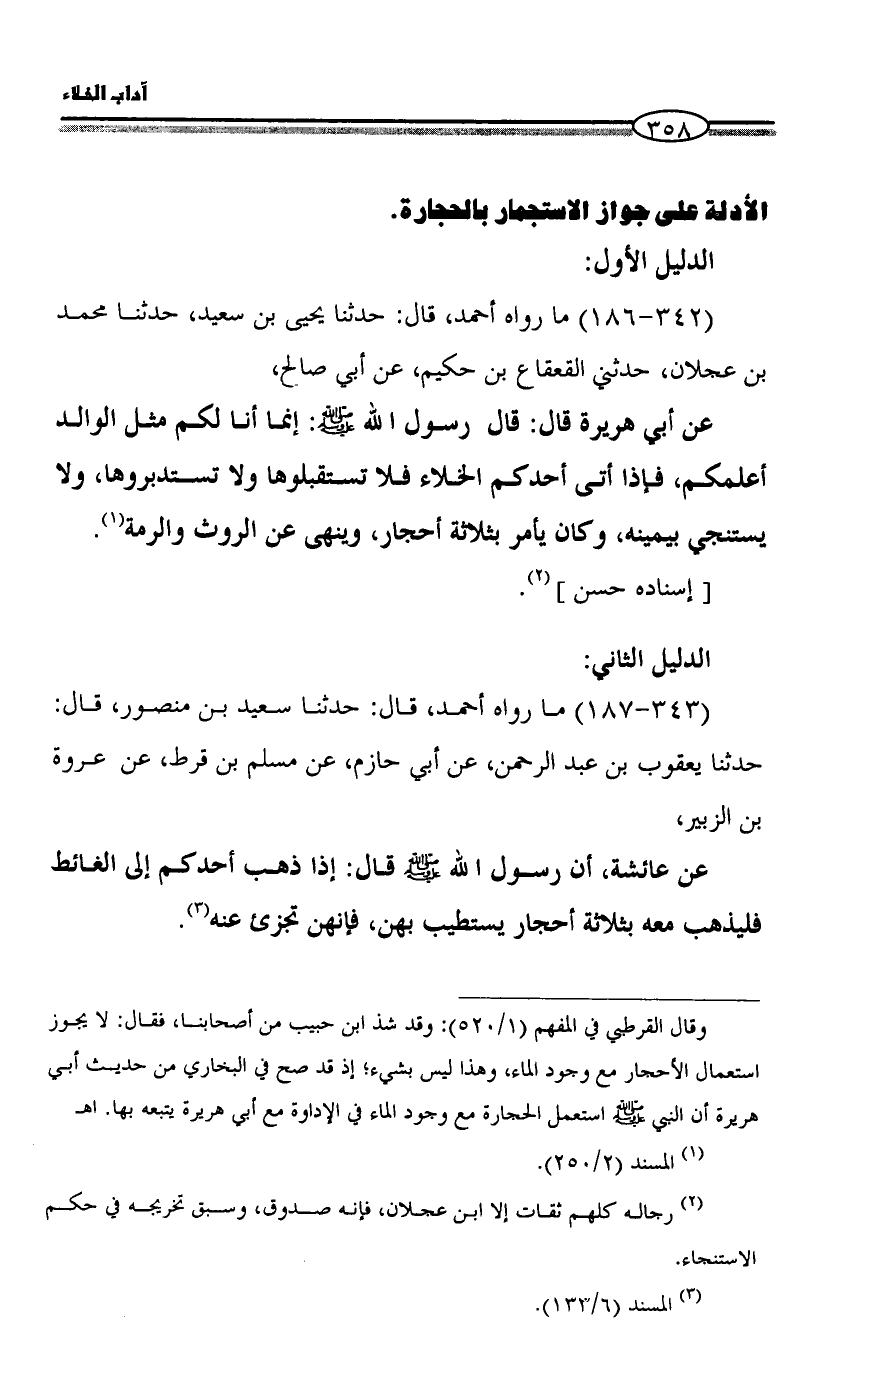 آداب الخلاء
٣٥٨
الأدلة على جواز الاستجمار بالحجارة.
الدليل الأول:
(٣٤٢-١٨٦) ما رواه أحمد، قال: حدثنا يحيى بن سعيد، حدثنا محمد
بن عجلان، حدثني القعقاع بن حكيم، عن أبي صالح،
عن أبي هريرة قال: قال رسول الله ﷺ: إنما أنا لكم مثل الوالد
أعلمكم، فإذا أتى أحدكم الخلاء فلا تستقبلوها ولا تستدبروها، ولا
يستنجي بيمينه، وكان يأمر بثلاثة أحجار، وينهى عن الروث والرمة(١).
[ إسناده حسن ](٢).
الدليل الثاني:
(٣٤٣-١٨٧) ما رواه أحمد، قال: حدثنا سعيد بن منصور، قال:
حدثنا يعقوب بن عبد الرحمن، عن أبي حازم، عن مسلم بن قرط، عن عروة
بن الزبير،
عن عائشة، أن رسول الله ﷺ قال: إذا ذهب أحدكم إلى الغائط
فليذهب معه بثلاثة أحجار يستطيب بهن، فإنهن تجزئ عنه(٣).
وقال القرطبي في المفهم (٥٢٠/١): وقد شذ ابن حبيب من أصحابنا، فقال: لا يجوز
استعمال الأحجار مع وجود الماء، وهذا ليس بشيء؛ إذ قد صح في البخاري من حديث أبي
هريرة أن النبي ﷺ استعمل الحجارة مع وجود الماء في الإداوة مع أبي هريرة يتبعه بها. اهـ
(١) المسند (٢٥٠/٢).
(٢) رجاله كلهم ثقات إلا ابن عجلان، فإنه صدوق، وسبق تخريجه في حكم
الاستنجاء.
(٣) المسند (١٣٣/٦).